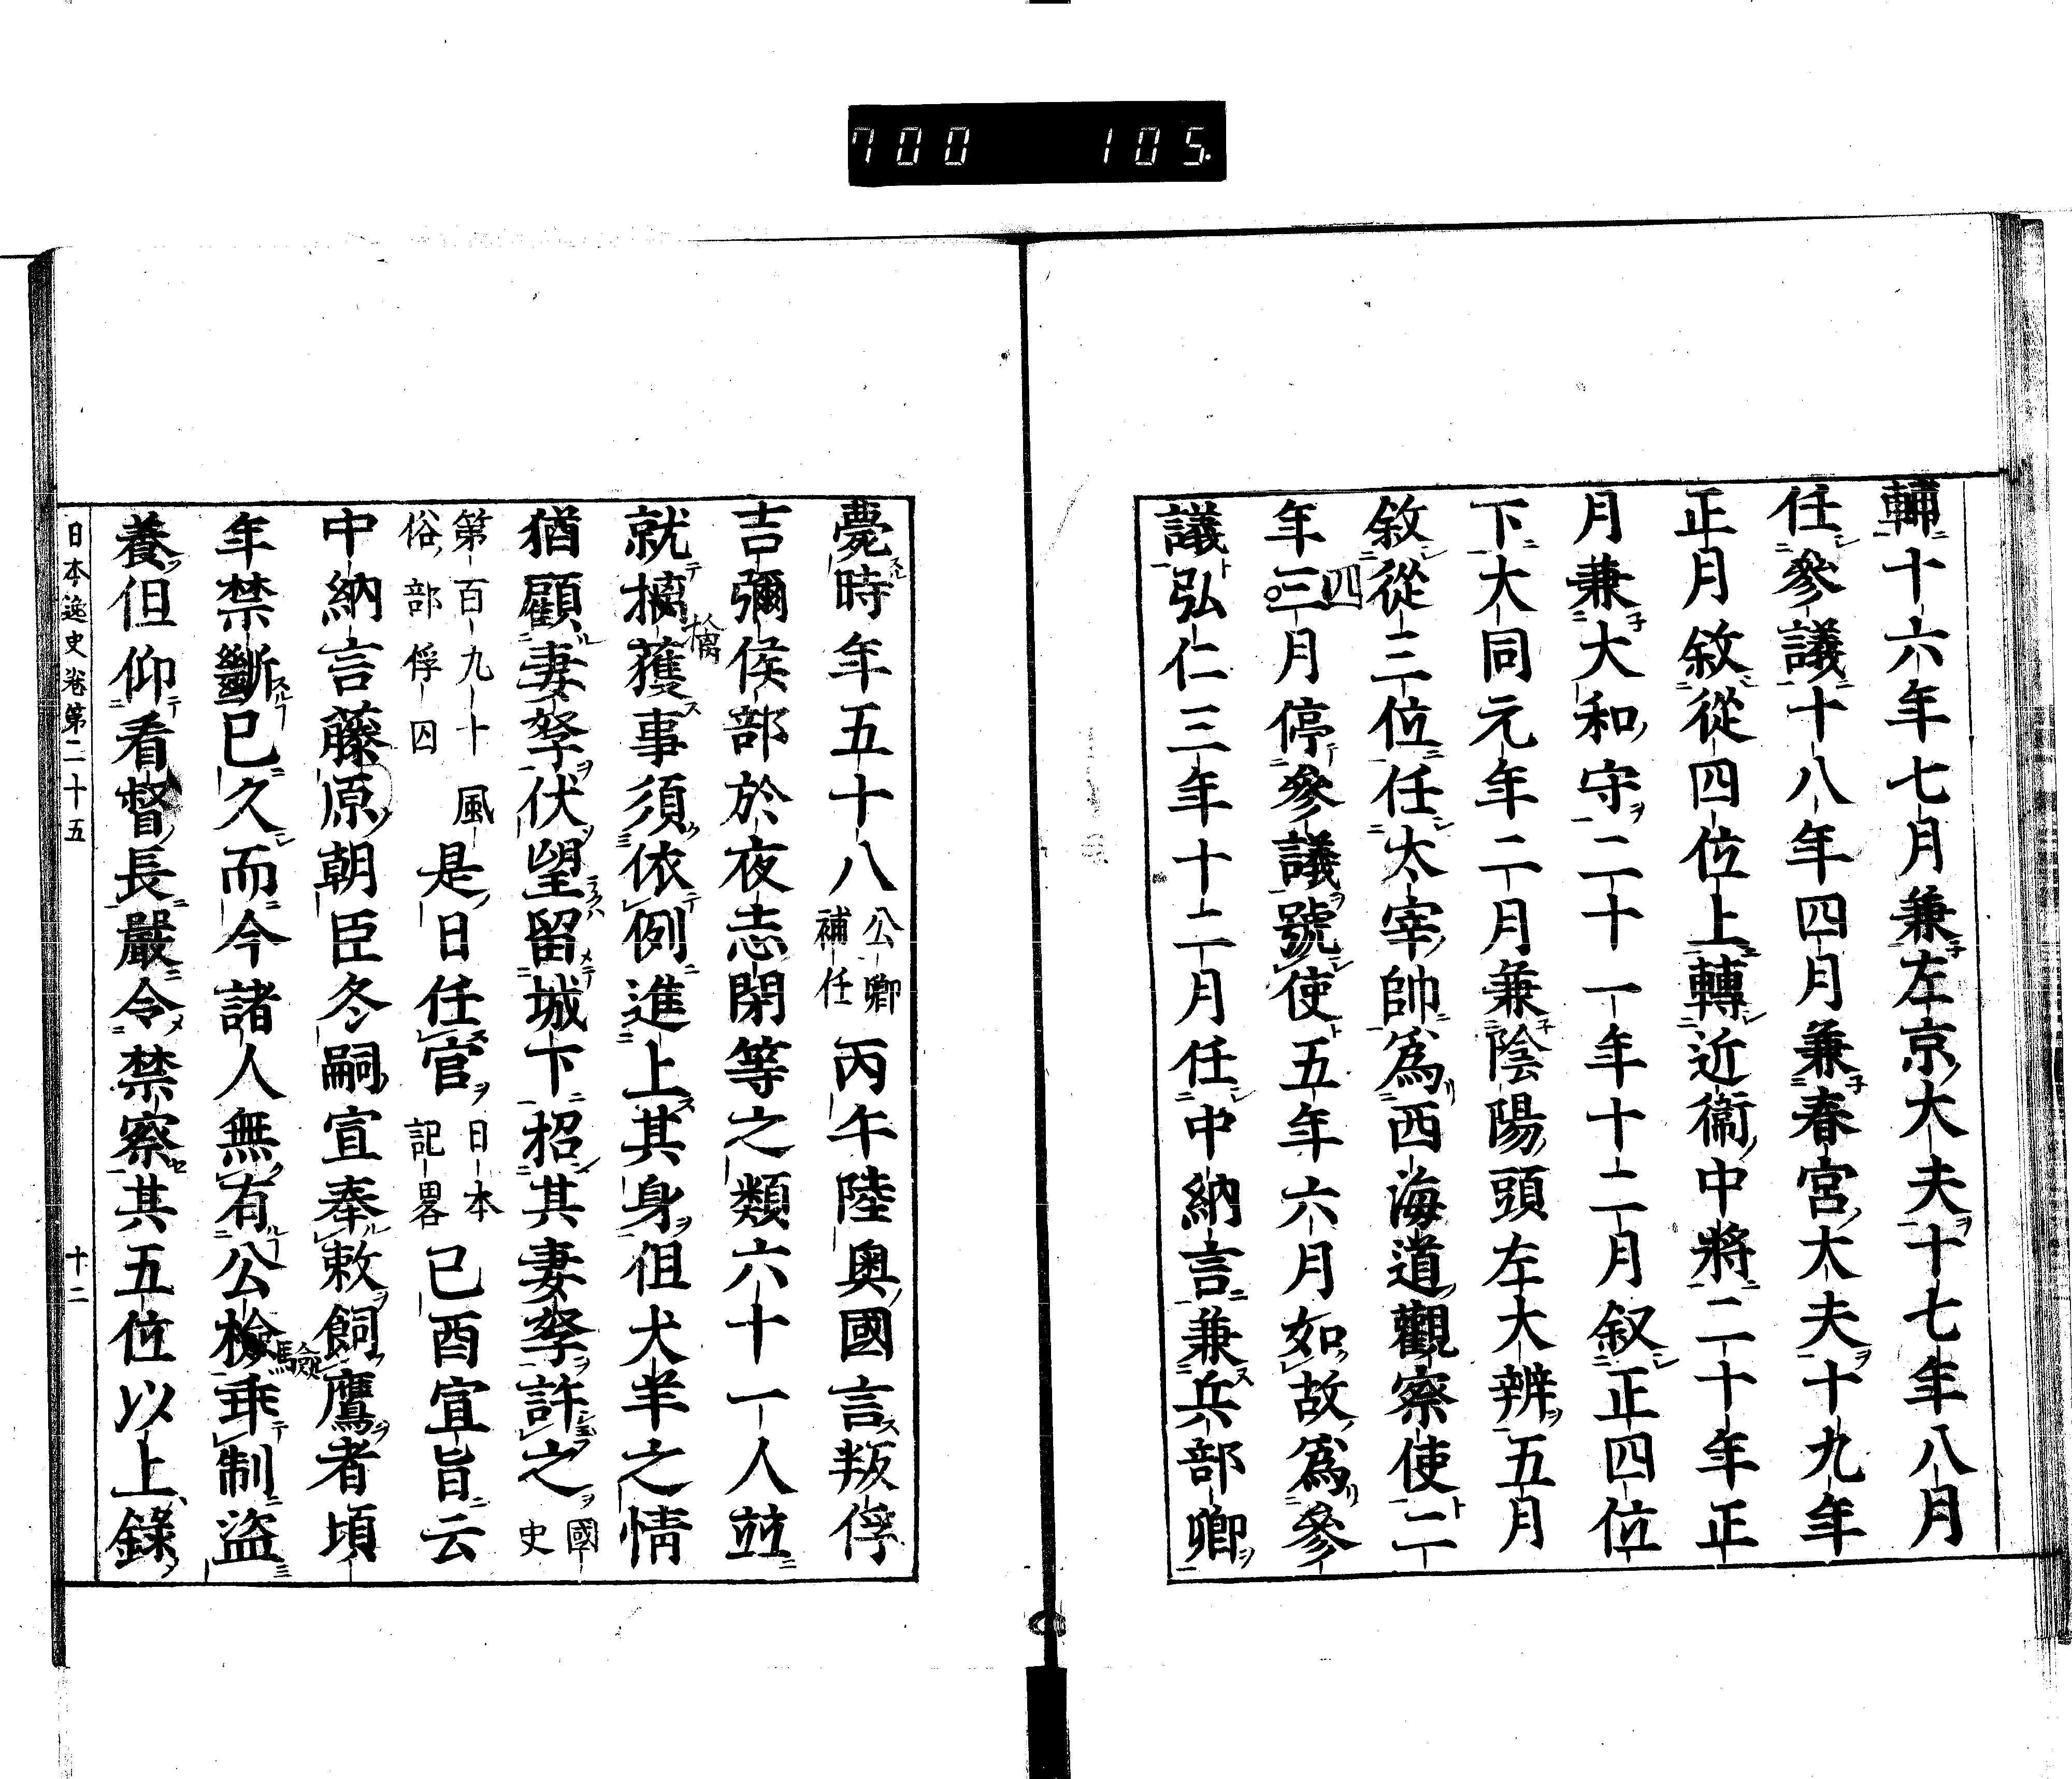 700 105.
輔十六年七月兼左京大夫十七年八月
任參議十八年四月兼春宮大夫十九年
正月敘從四位上轉近衞中將二十年正
月兼大和守二十一年十二月叙正四位
下大同元年二月兼陰陽頭左大辨五月
敘從三位任太宰帥爲西海道觀察使二
年三四月停參議號使五年六月如故爲參
議弘仁三年十二月任中納言兼兵部卿
薨時年五十八公卿補任丙午陸奧國言叛俘
吉彌侯部於夜志閇等之類六十一人竝
就擒擒獲事須依例進上其身但犬羊之情
猶顧妻孥伏望留城下招其妻孥許之國史
第百九十風俗部俘囚是日任官日本記畧己酉宣旨云
中納言藤原朝臣冬嗣宣奉敕飼鷹者頃
年禁斷已久而今諸人無有公檢驗乖制盜
養但仰看督長嚴令禁察其五位以上錄
日本逸史卷第二十五 十二